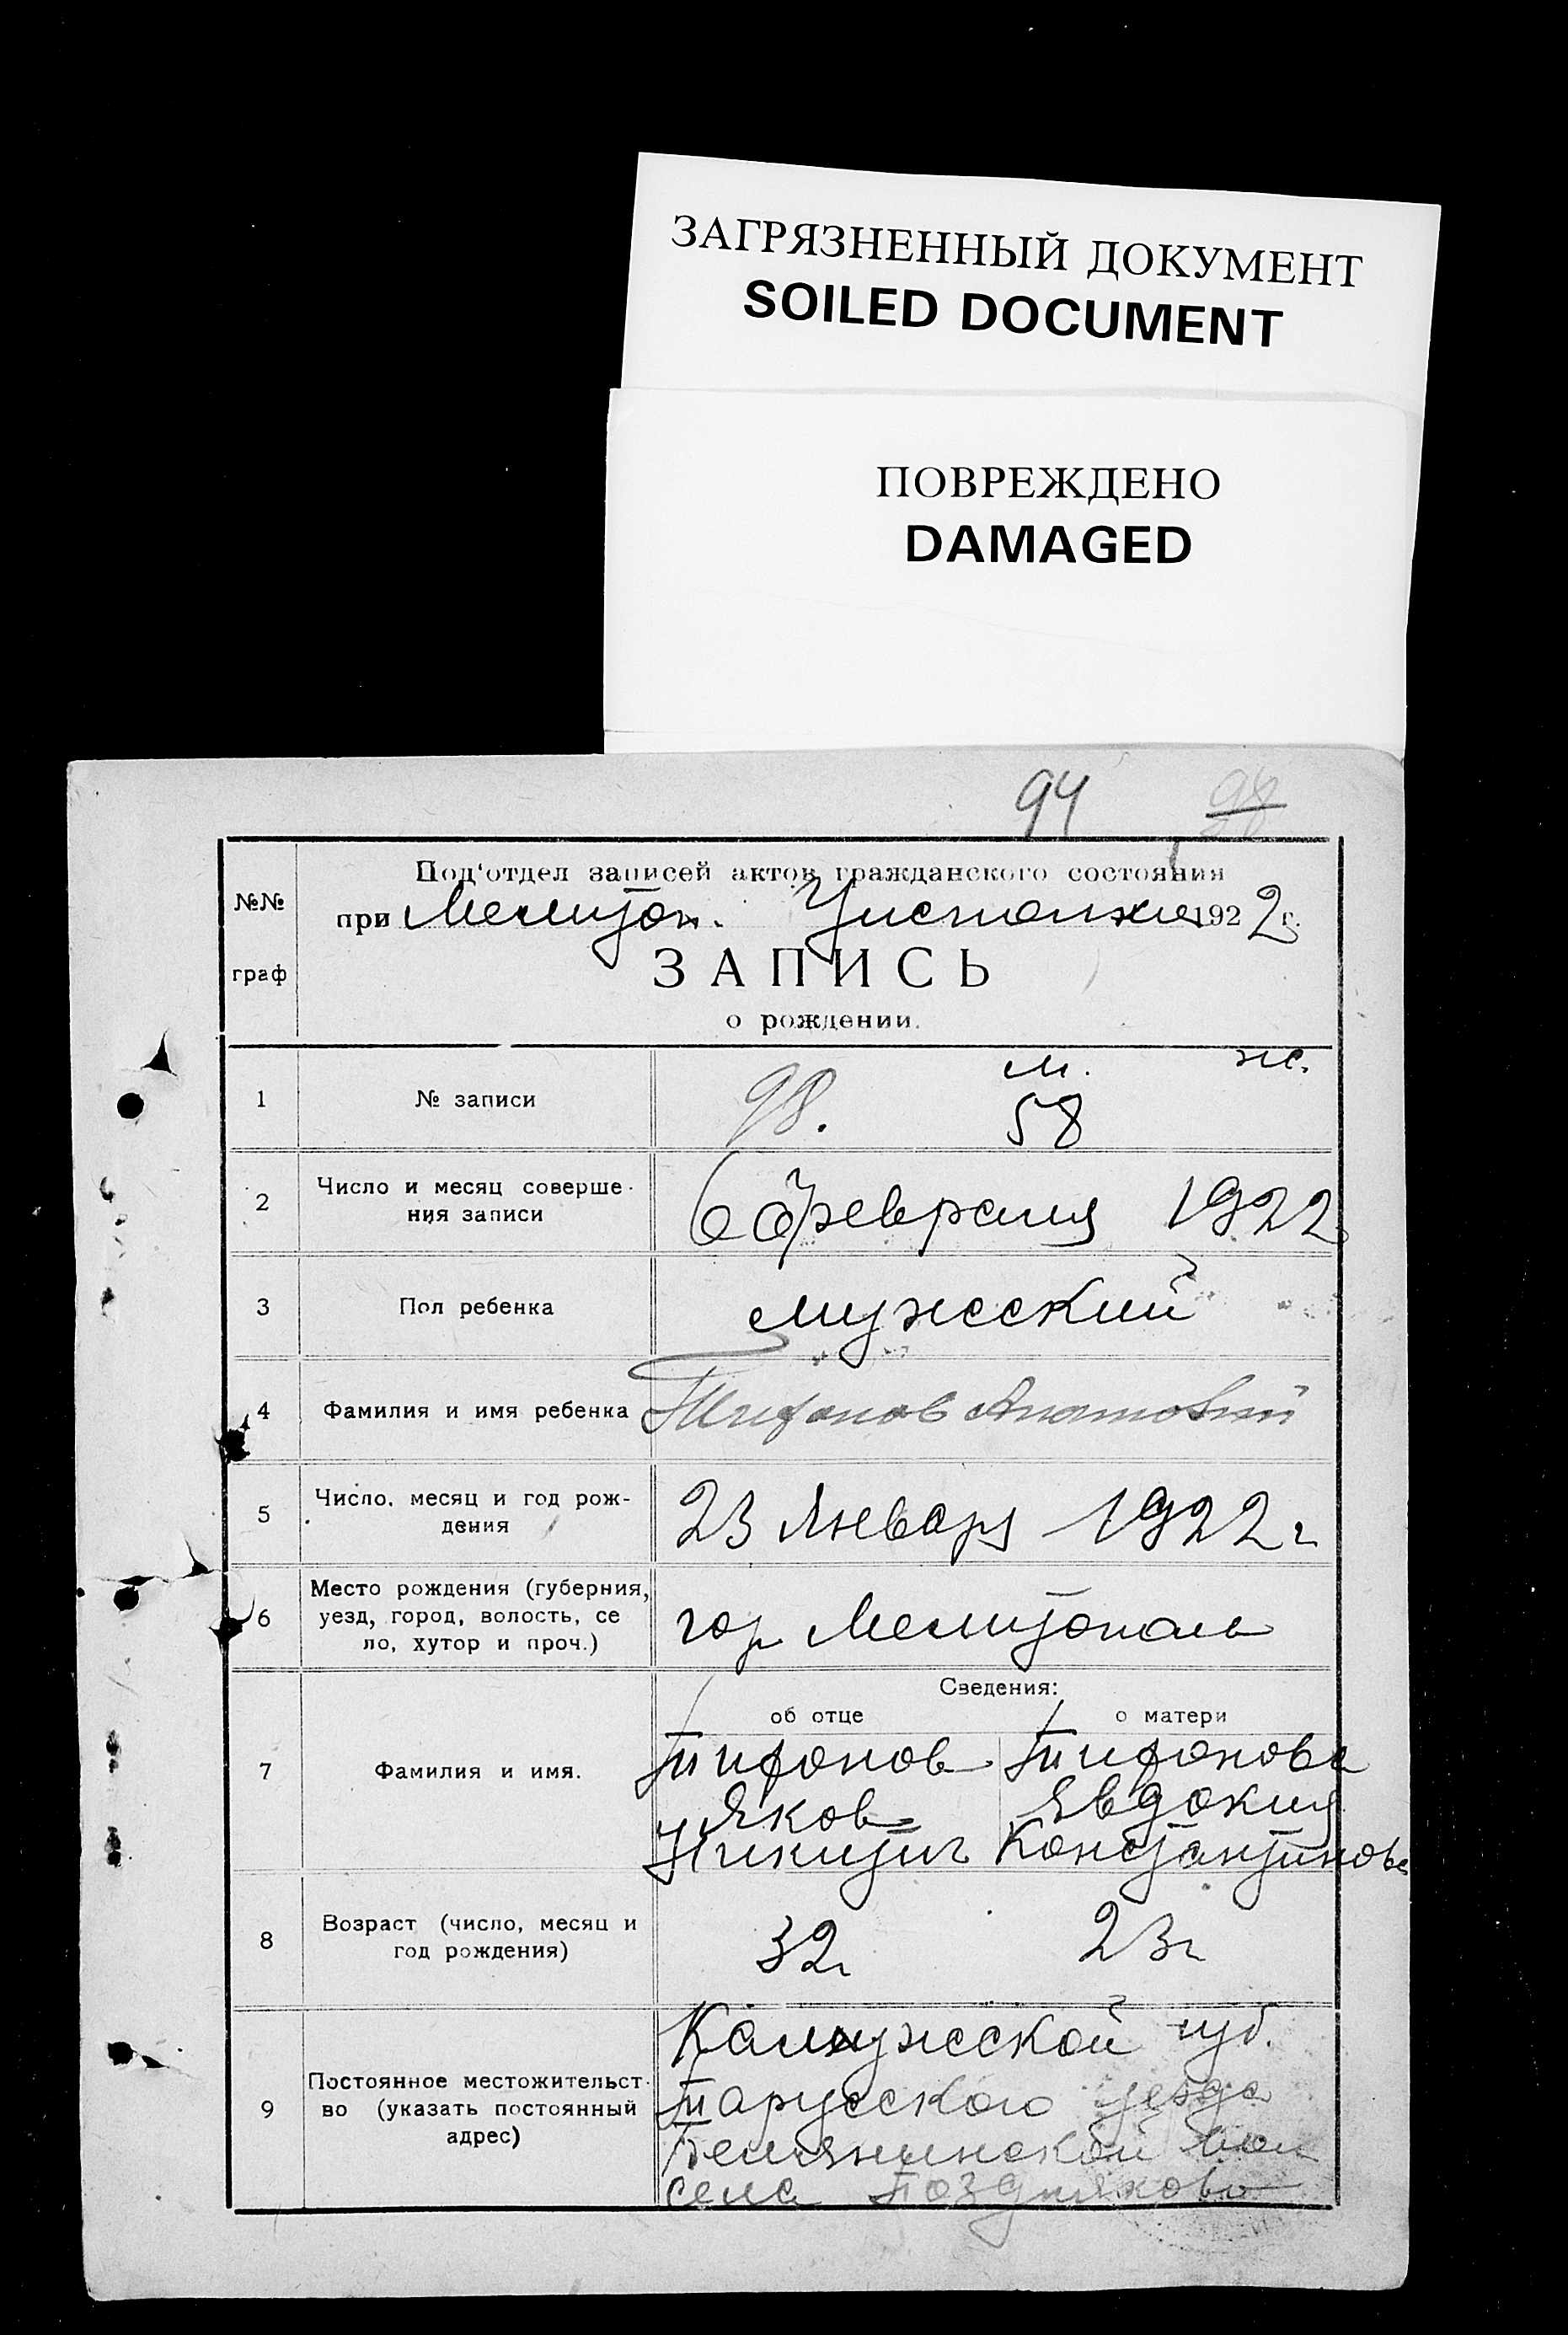 ЗАГРЯЗНЕННЫЙ ДОКУМЕНТ
SOILED DOCUMENT
ПОВРЕЖДЕНО
DAMAGED
94
98
№№
граф
Под'отдел записей актов гражданского состояния
при Мелитоп. Уисполкоме 1922 г.
ЗАПИСЬ
о рождении.
м. ж.
1 № записи 98. 58
2 Число и месяц соверше-
ния записи
6 Февраля 1922
3 Пол ребенка мужеский
4 Фамилия и имя ребенка Тифанов Анатолий
5 Число, месяц и год рож-
дения
23 Января 1922 г
6 Место рождения (губерния,
уезд, город, волость, се
ло, хутор и проч.)
гор Мелитополь
Сведения:
об отце о матери
7 Фамилия и имя.
Тифонов Тифонова
Яков Явдокия
Никитич Константинова
8 Возраст (число, месяц и
год рождения)
32 г 23 г
9 Постоянное местожительст-
во (указать постоянный
адрес)
Калужеской губ.
Тарусского уезда
вол
села Поздняково